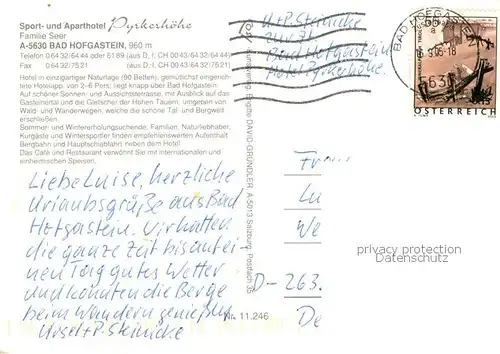 Sport- und Aparthotel Pyrkerhöhe
Familie Seer
A-5630 BAD HOFGASTEIN, 960 m
Telefon 0 64 32/64 44 oder 61 89 (aus D, I, CH 00 43/64 32/64 44)
Fax 0 64 32/75 21 (aus D, I, CH 00 43/64 32/75 21)
Hotel in einzigartiger Naturlage (90 Betten), gemütlichst eingerich-
tete Hotelapp. von 2–6 Pers. liegt knapp über Bad Hofgastein.
Auf schöner Sonnen- und Aussichtsterrasse, mit Ausblick auf das
Gasteinertal und die Gletscher der Hohen Tauern, umgeben von
Wald- und Wanderwegen, welche die schöne Tal- und Bergwelt
erschließen.
Sommer- und Wintererholungsuchende, Familien, Naturliebhaber,
Kurgäste und Wintersportler finden empfehlenswerten Aufenthalt.
Bergbahn und Hauptschiabfahrt neben dem Hotel.
Das Café und Restaurant verwöhnt Sie mit internationalen und
einheimischen Speisen.
U+P. Steinicke
zur Zt.
Bad Hofgastein
Hotel Pyrkerhöhe.
BAD HOFGASTEIN
5630
ÖSTERREICH
Liebe Luise, herzliche
Urlaubsgrüße aus Bad
Hofgastein. Wir hatten
die ganze Zeit bis auf ei-
nen Tag gutes Wetter
und konnten die Berge
beim Wandern genießen
Ursel + P. Steinicke
Kunstverlag Brigitte DAVID-GRÜNDLER, A-5013 Salzburg, Postfach 35
Nr. 11.246
Fr
Lu
We
D- 263.
De
privacy protection
Datenschutz